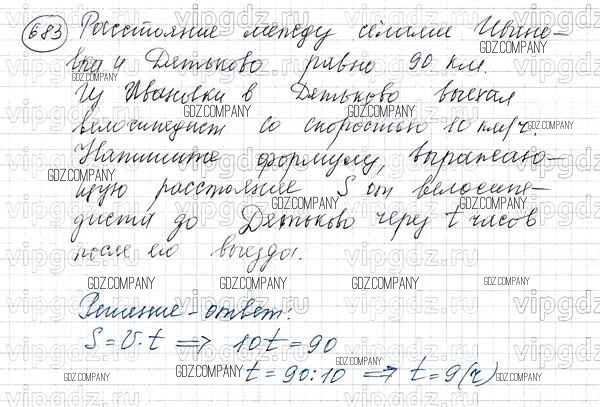 683 Расстояние между сёлами Ивано-
вка и Дятьково равно 90 км.
Из Ивановки в Дятьково выехал
велосипедист со скоростью 10 км/ч.
Напишите формулу, выражаю-
щую расстояние S от велосипе-
диста до Дятьково через t часов
после его выезда.
Решение - ответ:
S = V · t ⇒ 10t = 90
t = 90 : 10 ⇒ t = 9 (ч)